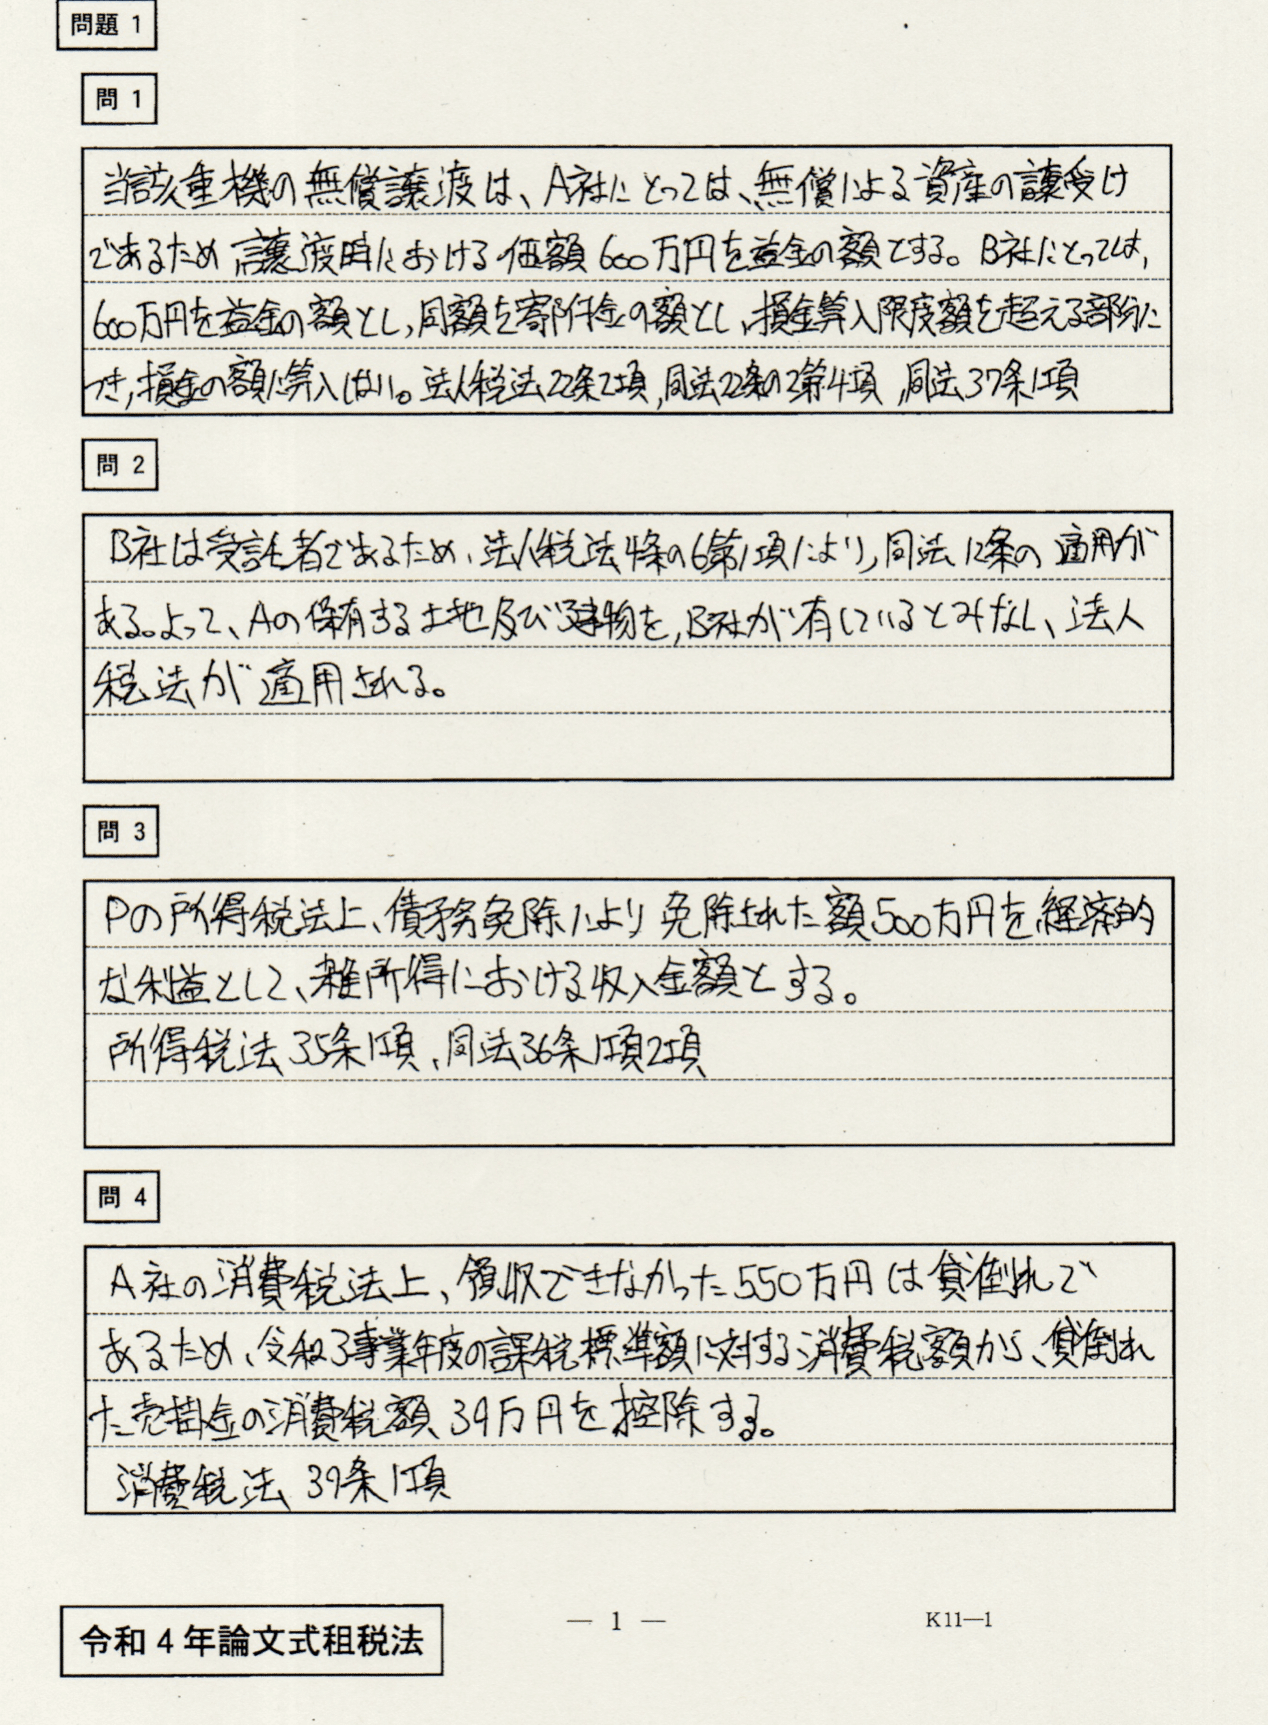 問題 1
問 1
当該重機の無償譲渡は、A社にとっては、無償による資産の譲受け
であるため 譲渡時における価額600万円を益金の額とする。B社にとっては,
600万円を益金の額とし,同額を寄附金の額とし,損金算入限度額を超える部分に
つき,損金の額に算入しない。法人税法22条2項,同法22条の2第4項,同法37条1項
問 2
B社は受託者であるため、法人税法4条の6第1項により,同法12条の適用が
ある。よって、Aの保有する土地及び建物を,B社が有しているとみなし、法人
税法が適用される。
問 3
Pの所得税法上、債務免除により免除された額500万円を経済的
な利益として、雑所得における収入金額とする。
所得税法35条1項、同法36条1項2項
問 4
A社の消費税法上、領収できなかった550万円は貸倒れで
あるため、令和3事業年度の課税標準額に対する消費税額から、貸倒れ
た売掛金の消費税額39万円を控除する。
消費税法39条1項
令和4年論文式租税法
— 1 —
K11—1